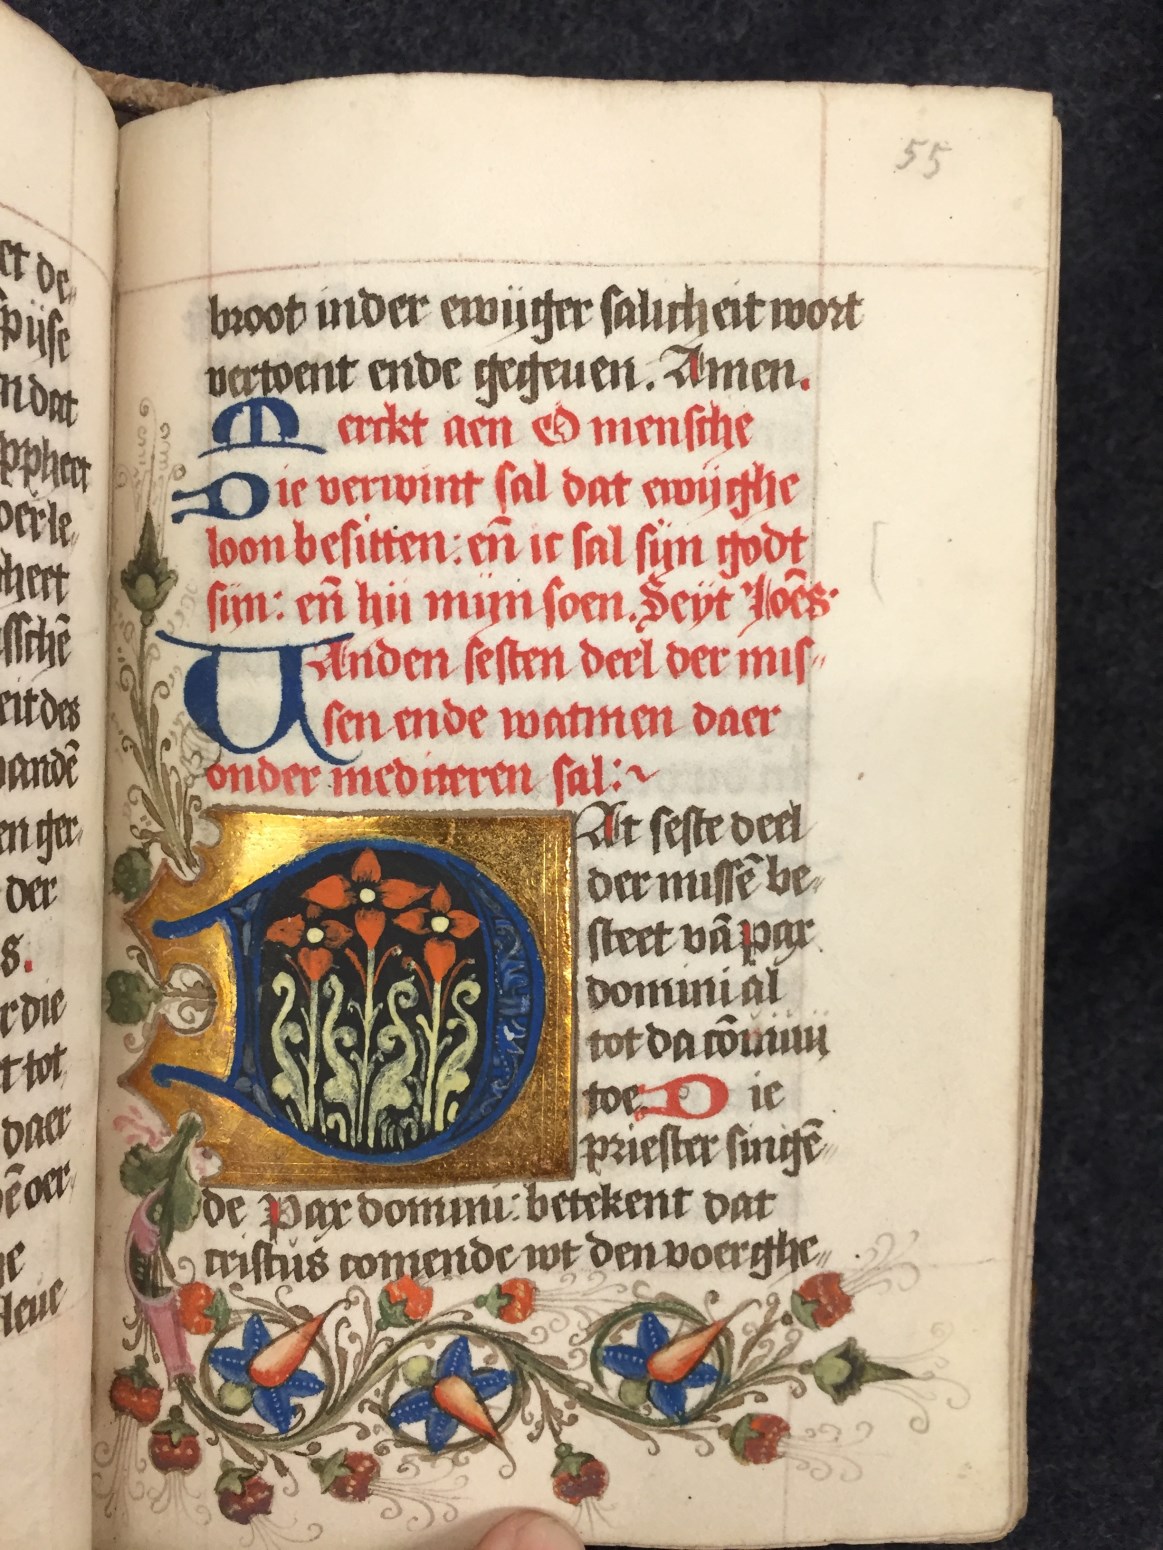 et de
pijse
n dat
ppheet
oerle
heet
sschē
eit des
andē
en ger
der
s.
r die
t tot
daer
ē oer
ne
leue
55
broot inder ewijger salicheit wort
vertoent ende gegeuen. Amen.
Merckt aen O mensche
Die verwint sal dat ewijghe
loon besitten: eñ ic sal sijn godt
sijn: eñ hij mijn soen. Seyt Joēs.
Vanden sesten deel der mis
sen ende watmen daer
onder mediteren sal:~
DAt seste deel
der missē be
steet vā pax
domini al
tot da cōmuu
toe. Die
priester singē
de Pax domini: betekent dat
cristus comende wt den voerghe